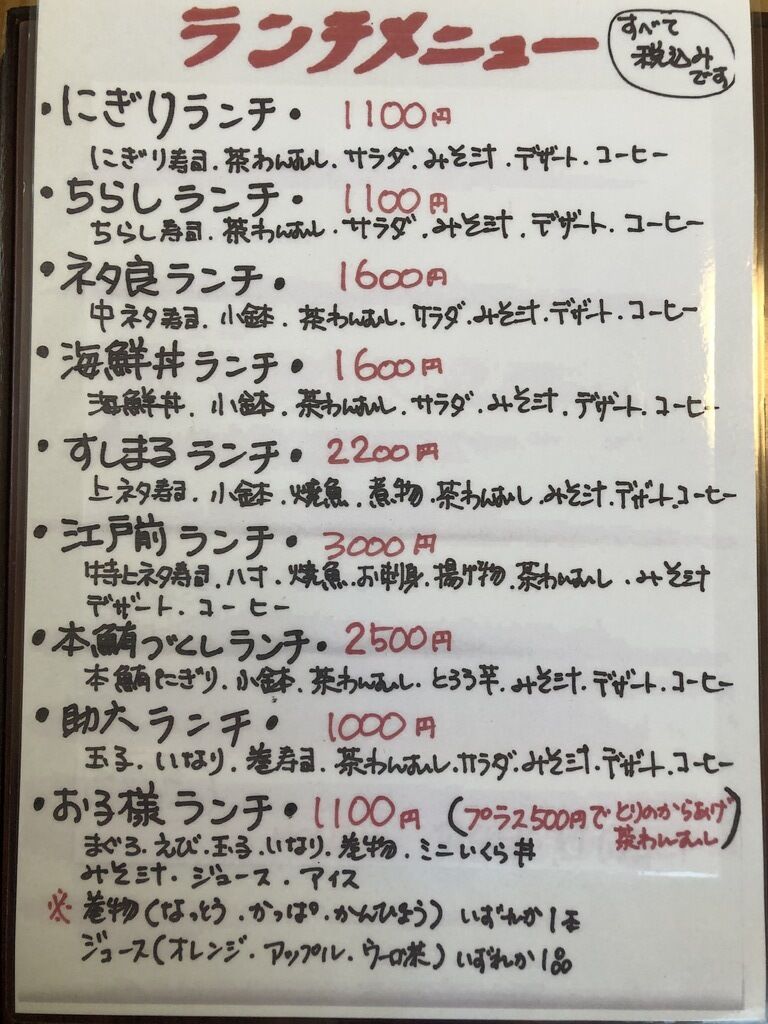 ランチメニュー
すべて
税込み
です
・にぎりランチ・ 1100円
にぎり寿司.茶わんむし.サラダ.みそ汁.デザート.コーヒー
・ちらしランチ・ 1100円
ちらし寿司.茶わんむし.サラダ.みそ汁.デザート.コーヒー
・ネタ良ランチ・ 1600円
中ネタ寿司.小鉢.茶わんむし.サラダ.みそ汁.デザート.コーヒー
・海鮮丼ランチ・ 1600円
海鮮丼.小鉢.茶わんむし.サラダ.みそ汁.デザート.コーヒー
・すしまるランチ・ 2200円
上ネタ寿司.小鉢.焼魚.煮物.茶わんむし.みそ汁.デザート.コーヒー
・江戸前ランチ・ 3000円
特上ネタ寿司.八寸.焼魚.お刺身.揚げ物.茶わんむし.みそ汁
デザート.コーヒー
・本鮪づくしランチ・ 2500円
本鮪にぎり.小鉢.茶わんむし.とろろ芋.みそ汁.デザート.コーヒー
・助六ランチ・ 1000円
玉子.いなり.巻寿司.茶わんむし.サラダ.みそ汁.デザート.コーヒー
・お子様ランチ・ 1100円 (プラス500円でとりのからあげ
茶わんむし)
まぐろ.えび.玉子.いなり.巻物.ミニいくら丼
みそ汁.ジュース.アイス
※巻物(なっとう.かっぱ.かんぴょう)いずれか1本
ジュース(オレンジ.アップル.ウーロン茶)いずれか1品